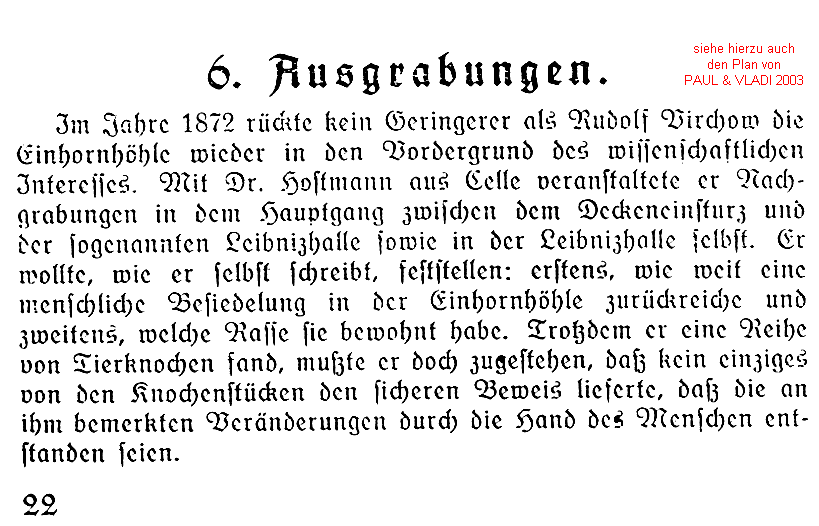 siehe hierzu auch
den Plan von
PAUL & VLADI 2003
6. Ausgrabungen.
Im Jahre 1872 rückte kein Geringerer als Rudolf Virchow die
Einhornhöhle wieder in den Vordergrund des wissenschaftlichen
Interesses. Mit Dr. Hostmann aus Celle veranstaltete er Nach-
grabungen in dem Hauptgang zwischen dem Deckeneinsturz und
der sogenannten Leibnizhalle sowie in der Leibnizhalle selbst. Er
wollte, wie er selbst schreibt, feststellen: erstens, wie weit eine
menschliche Besiedelung in der Einhornhöhle zurückreiche und
zweitens, welche Rasse sie bewohnt habe. Trotzdem er eine Reihe
von Tierknochen fand, mußte er doch zugestehen, daß kein einziges
von den Knochenstücken den sicheren Beweis lieferte, daß die an
ihm bemerkten Veränderungen durch die Hand des Menschen ent-
standen seien.
22